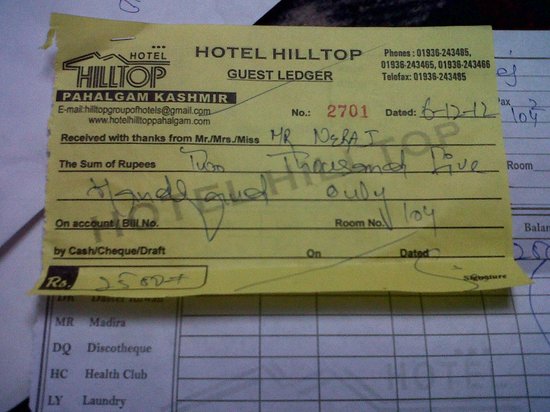 HOTEL
HILLTOP
PAHALGAM KASHMIR
E-mail:hilltopgroupofhotels@gmail.com
www.hotelhilltoppahalgam.com
HOTEL HILLTOP
GUEST LEDGER
Phones : 01936-243485,
01936-243465, 01936-243466
Telefax: 01936-243485
No.: 2701 Dated: 6-12-12
Received with thanks from Mr./Mrs./Miss MR NERAJ
The Sum of Rupees Two Thousand Five
Hundred only
HOTEL HILLTOP
On account / Bill No. Room No. 104
by Cash/Cheque/Draft On Dated
Rs. 2500
Signature
Pax 2
104
Room
Balan
MR Madira
DQ Discotheque
HC Health Club
LY Laundry